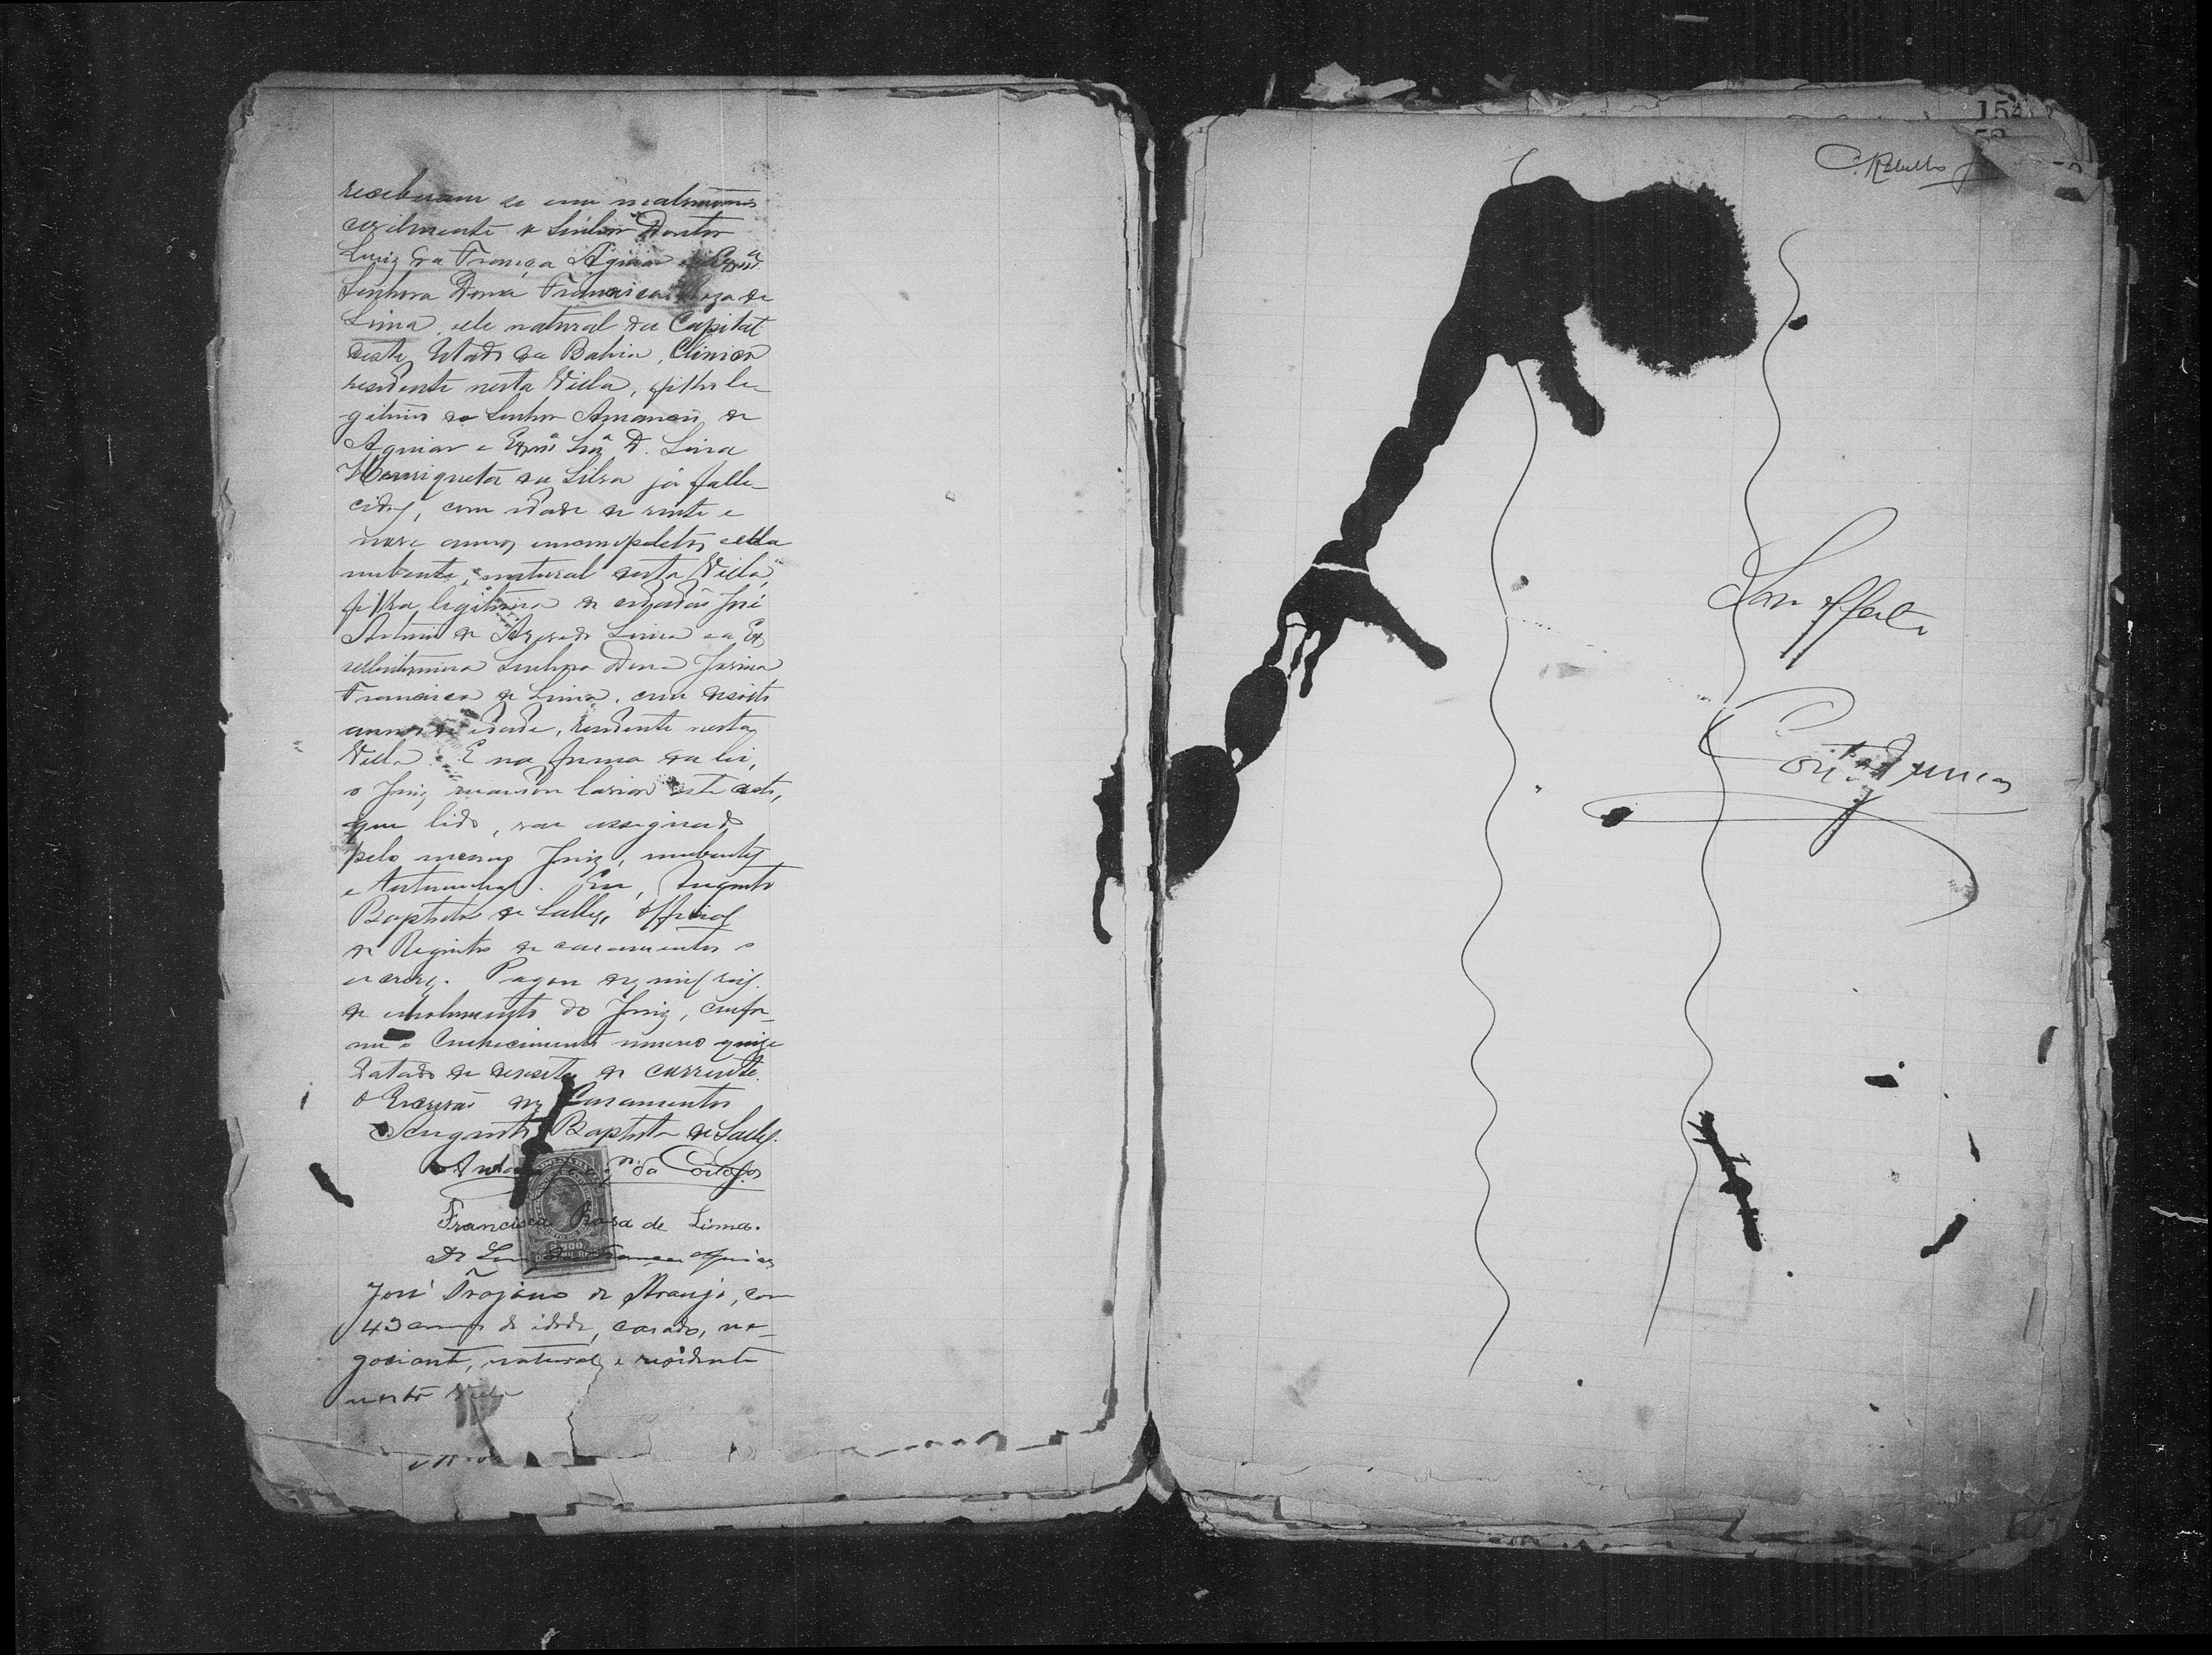 receberam se em matrimonio
civilmente o Senhor Doutor
Luiz da França Aguiar e a Exmª
Senhora Dona Francisca Roza de
Lima, elle natural da Capital
deste Estado da Bahia, Clinico
residente nesta Villa, filho le-
gitimo do Senhor Amancio de
Aguiar e Exmª Snrª D. Lina
Henriqueta da Silva já falle-
cidos, com idade de vinte e
nove annos incompletos e ella
nubente, natural desta Villa,
filha legitima do cidadão José
Antonio de Azevedo Lima e a Ex
cellentissima Senhora Dona
Francisca de Lima, com desoito
annos de idade, residente nesta
Villa. E na forma da lei,
o Juiz mandou lavrar este acto,
que lido, vae assignado
pelo mesmo Juiz, nubentes
e testemunhas. Eu, Augusto
Baptista de Salles, Official
do Registro de casamentos o
escrevy. Pagou dez mil reis
de emolumento do Juiz, confor-
me o Conhecimento numero quinze
datado de desesete do corrente.
O Escrivão dos Casamentos
Augusto Baptista de Salles.
da Costa
Francisca Rosa de Lima.
Dr Luiz da França Aguiar
José Trojano de Araujo, com
43 annos de idade, casado, ne-
gociante, natural e residente
nesta Villa
154
C. Rabello
Sem effeito